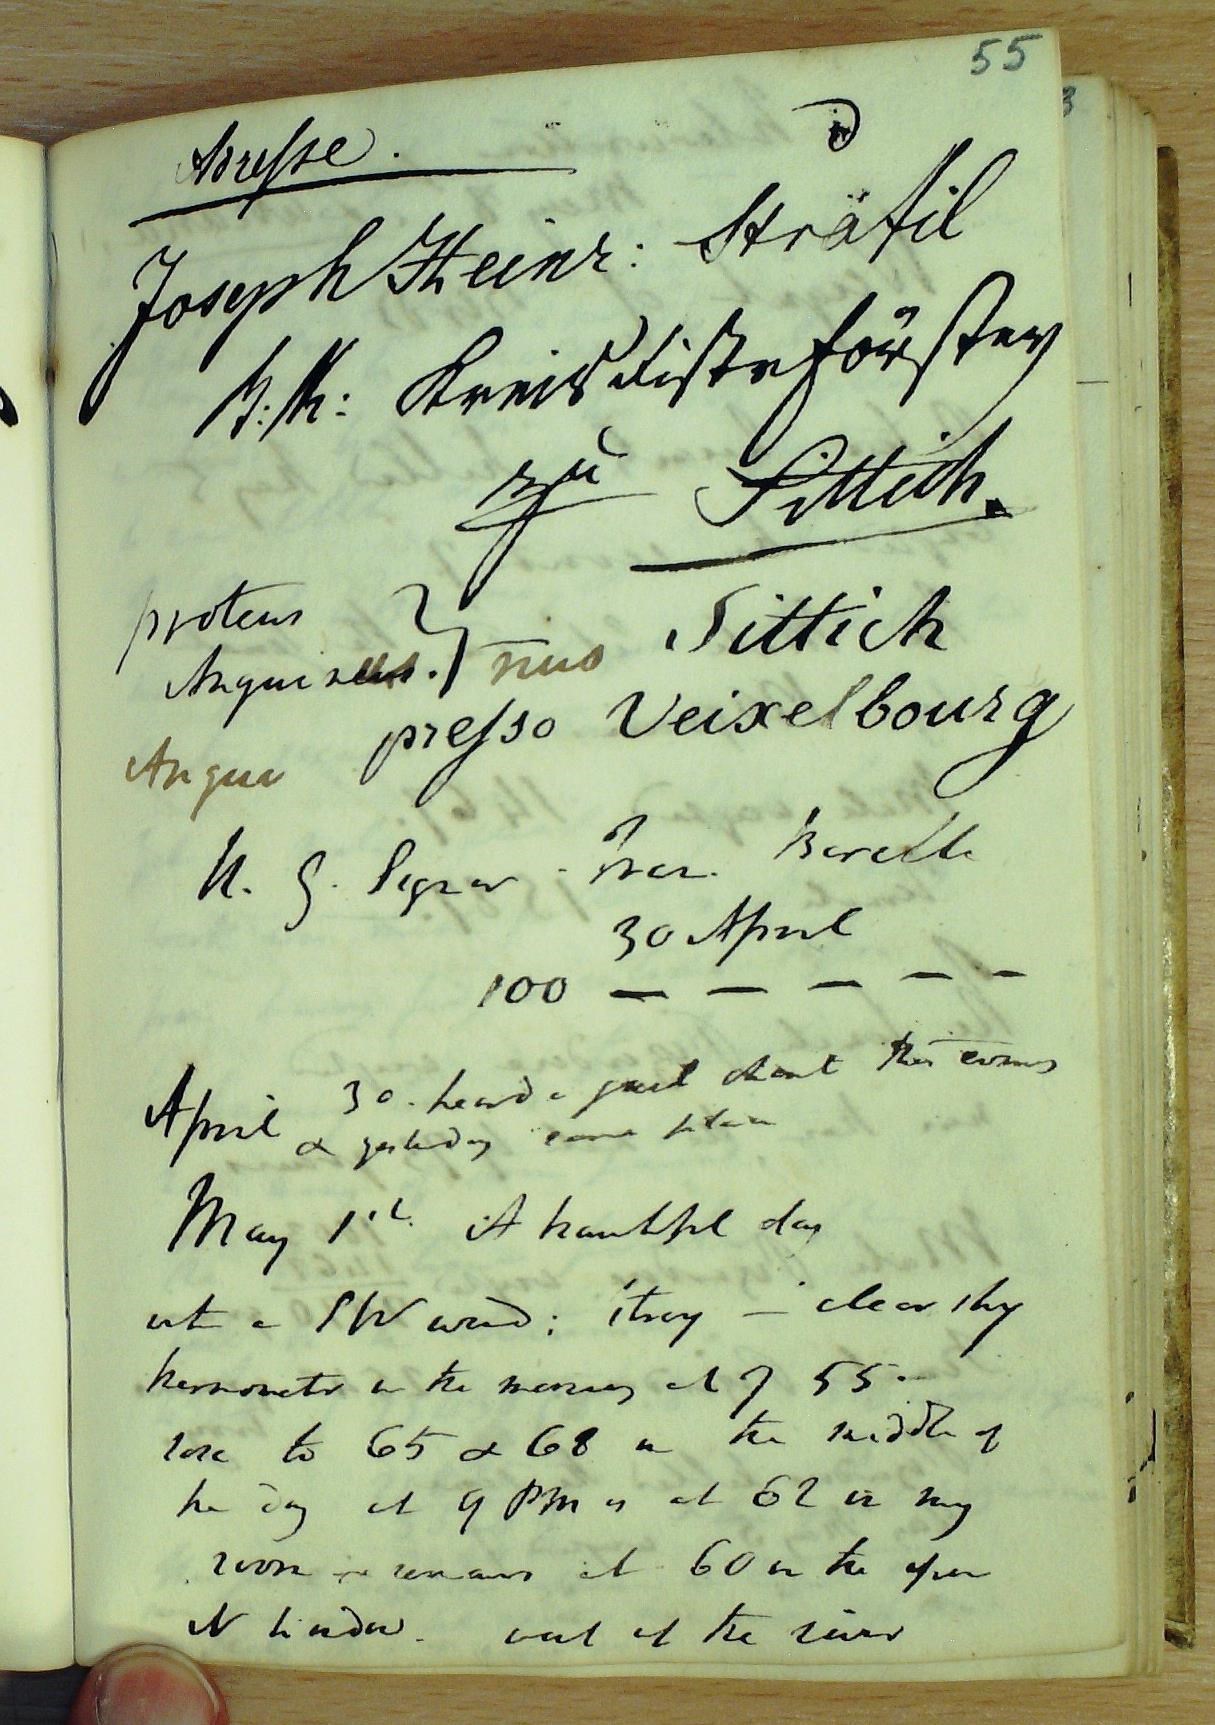 55
Adresse.
Joseph Heinr: Sträfil
K: K: Kreisdistrförster
zu Sittich.
proteus } Sittich
Anguinus.
presso Veixelbourg
Angui
30 April
100 — — — — —
April 30. heard a quail chant this evening
& yesterday
May 1st. A beautiful day
with a SW wind; strong — clear sky
thermometer in the morning at 7 55.
rose to 65 & 68 in the middle of
the day at 9 PM is at 62 in my
room remains at 60 in the open
N Window. out of the river